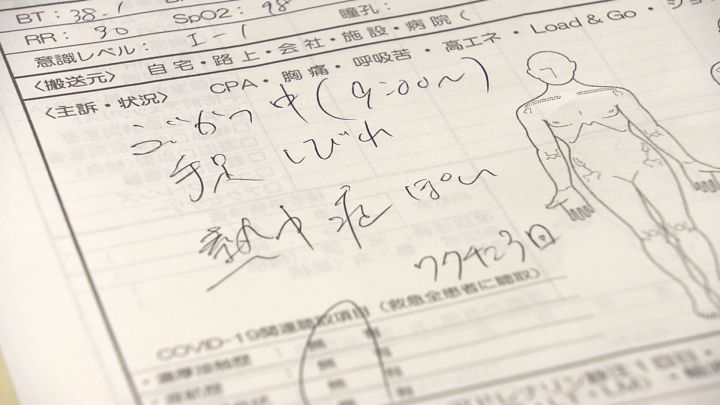 BT: 38.1 SpO2: 98 瞳孔:
RR: 30
意識レベル: I-1
〈搬送元〉 自宅・路上・会社・施設・病院 (
CPA・胸痛・呼吸苦・高エネ・Load & Go・ショ
〈主訴・状況〉
ゴルフ中 (9:00〜)
手足 しびれ
熱中症 ぽい
ワクチン3回
COVID-19関連聴取項目 (救急全患者に聴取)
・濃厚接触歴: 無 有
無 有